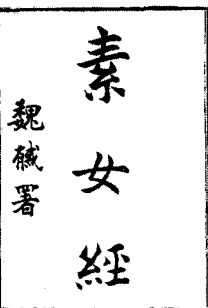 素女經
魏𢧵署